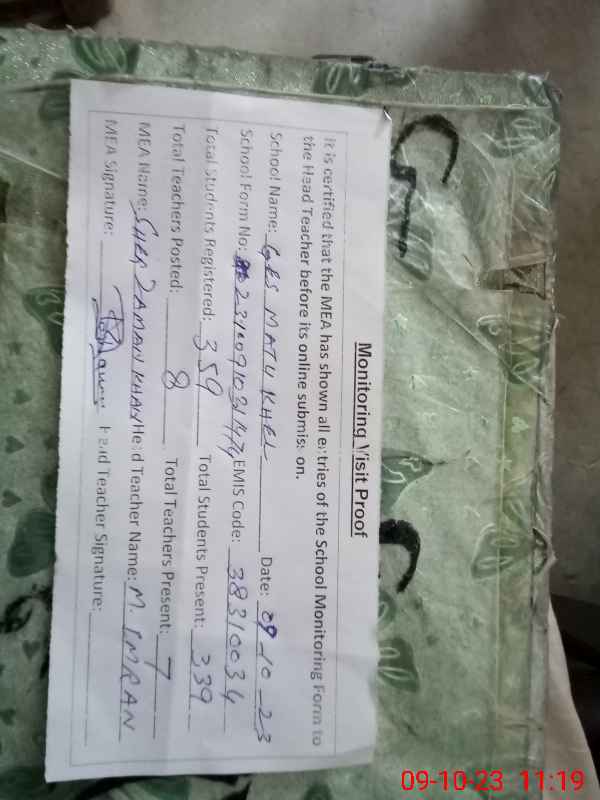 Monitoring Visit Proof
It is certified that the MEA has shown all entries of the School Monitoring Form to
the Head Teacher before its online submission.
School Name: GPS MATU KHEL Date: 09-10-23
School Form No: EMIS Code: 38310034
Total Students Registered: 359 Total Students Present: 339
Total Teachers Posted: 8 Total Teachers Present: 7
MEA Name: SHER ZAMAN KHAN Head Teacher Name: M. IMRAN
MEA Signature: Head Teacher Signature:
09-10-23 11:19